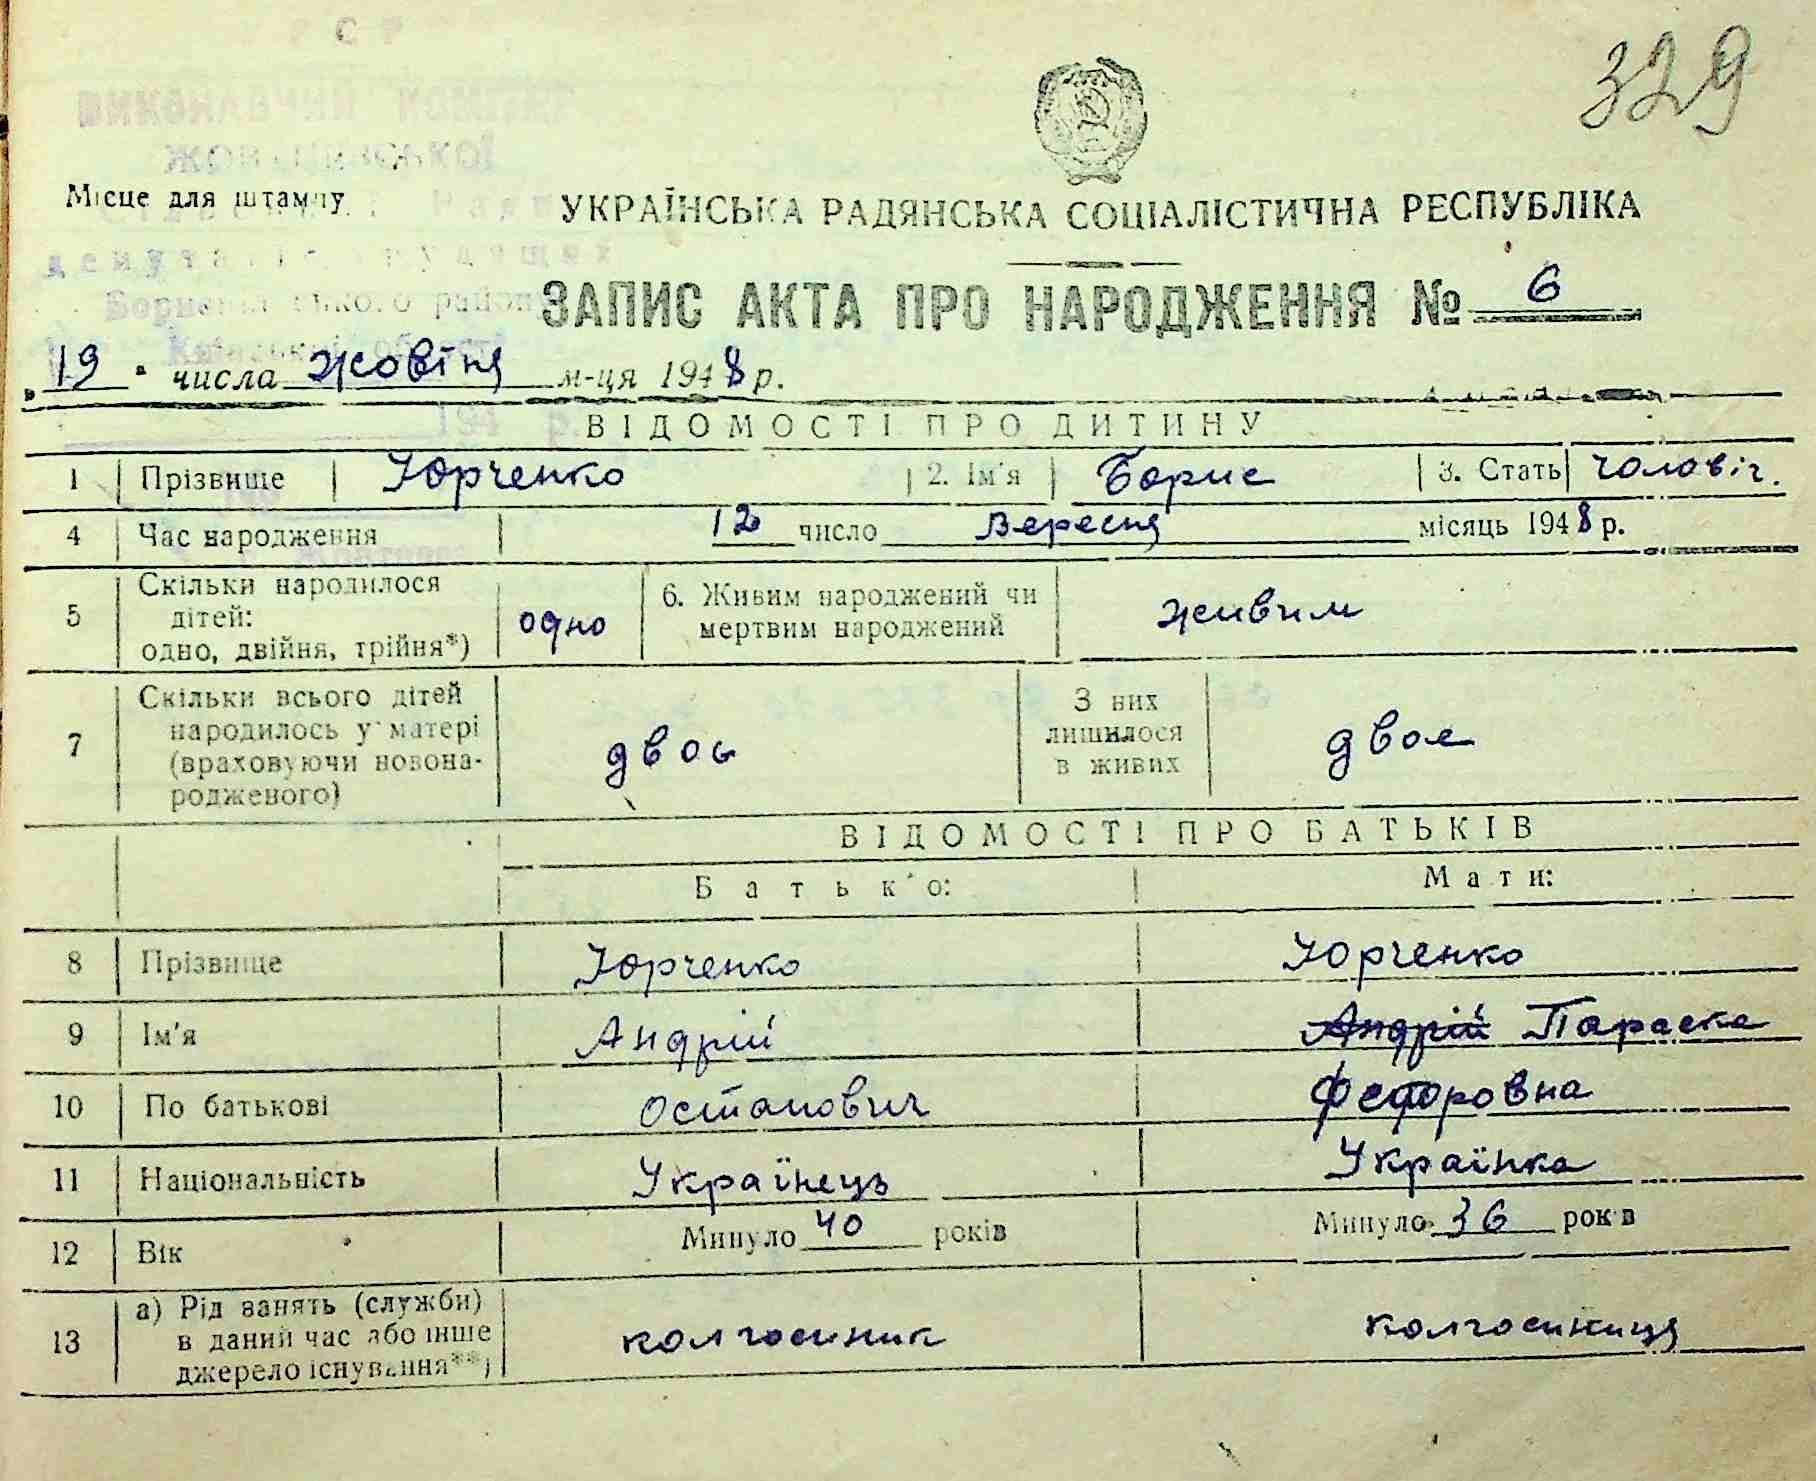 329
УРСР
ВИКОНАВЧИЙ КОМІТЕТ
Місце для штампу
УКРАЇНСЬКА РАДЯНСЬКА СОЦІАЛІСТИЧНА РЕСПУБЛІКА
депутатів трудящих
району
ЗАПИС АКТА ПРО НАРОДЖЕННЯ № 6
Київської області
„19" числа жовтня м-ця 1948 р.
194 р.
ВІДОМОСТІ ПРО ДИТИНУ
1 Прізвище Юрченко 2. Ім'я Борис 3. Стать чоловіч.
4 Час народження 12 число Вересня місяць 1948 р.
5 Скільки народилося дітей: одно, двійня, трійня*) одно 6. Живим народжений чи мертвим народжений живим
7 Скільки всього дітей народилось у матері (враховуючи новонародженого) двоє З них лишилося в живих двоє
ВІДОМОСТІ ПРО БАТЬКІВ
Батько: Мати:
8 Прізвище Юрченко Юрченко
9 Ім'я Андрій Андрій Параска
10 По батькові Остапович Федоровна
11 Національність Українець Українка
12 Вік Минуло 40 років Минуло 36 років
13 а) Рід занять (служби) в даний час або інше джерело існування**) колгоспник колгоспниця